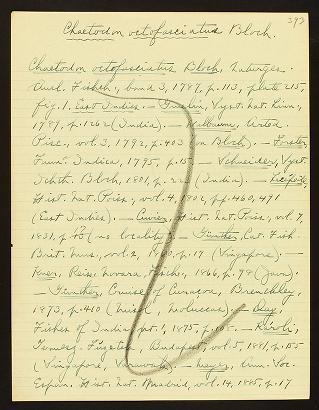 393
Chaetodon octofasciatus Bloch.
Chaetodon octofasciatus Bloch, Naturges.
Ausl. Fische, band 3, 1787, p. 113, plate 215,
fig. 1. East Indies. — Gmelin, Syst. Nat. Linn.,
1789, p. 1262 (India). — Walbaum, Arted.
Pisc., vol. 3, 1792, p. 403 (on Bloch). — Forster,
Faun. Indica, 1795, p. 15. — Schneider, Syst.
Ichth. Bloch, 1801, p. (India). — Lacépède,
Hist. Nat. Poiss., vol. 4, 1802, pp. 460, 471
(East Indies). — Cuvier, Hist. Nat. Poiss., vol. 7,
1831, p. (no locality). — Günther, Cat. Fish.
Brit. Mus., vol. 2, 1860, p. 17 (Singapore). —
Kner, Reis. Novara, Fische, 1866, p. 98 (Java).
— Günther, Cruise of Curacoa, Brenchley,
1873, p. 410 (Misol, Moluccas). — Day,
Fishes of India, pt. 1, 1875, p. — Károli,
Termes. Füzetek, Budapest, vol. 5, 1881, p. 155
(Singapore, Sarawak). — Meyer, An. Soc.
Españ. Hist. Nat. Madrid, vol. 14, 1885, p. 17